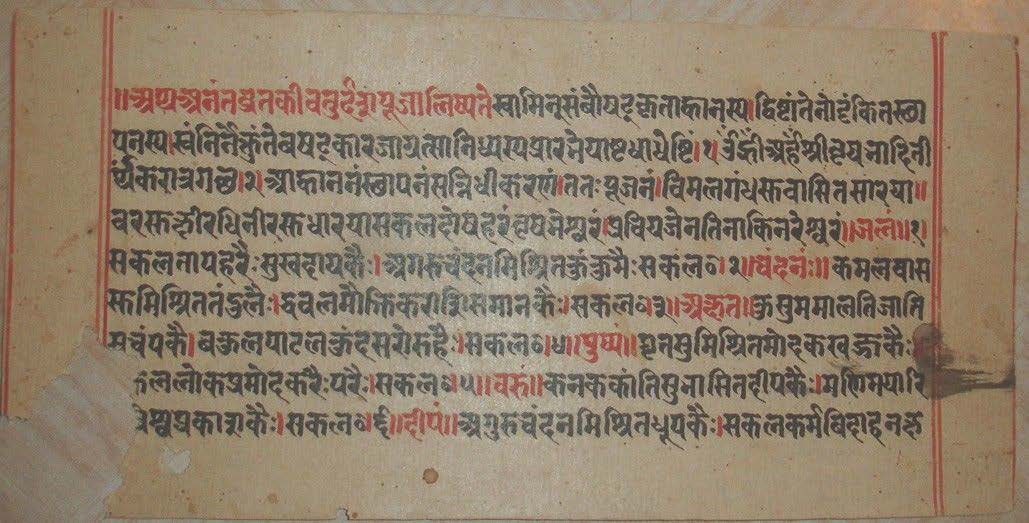 ॥अथ अनंतव्रतकी चतुर्दश पूजा लिष्यते स्वामिन्संवौषट्कृताह्वानस्य। द्विष्टांतेनोट्टंकितस्छा
पनस्य। स्वंनिर्नेक्तुंतेवषट्कारजाग्रत्सानिध्यस्यप्रारभेयाष्टधाधेष्टिं।१ उँह्रींअर्हंश्रीवृषभादिती
र्थंकरात्रागछ।२।आह्वाननंस्छापनंसन्निधीकरणं।ततः पूजनं।विमलगंधसुवासितसारया॥
वरसुक्षीरधिनीरसुधारयासकलदोषहरंवृषभेश्वरं।प्रवियजेनतिनाकिनरेश्वरं॥जलं॥१।
सकलतापहरैःसुखदायकैः।अगरुचंदनमिश्रितकुंकुमैःसकल०।२।चंदनं॥कमलवास
सुमिश्रिततंडुलैः।धवलमौक्तिकराशिसमानकैः।सकल०।३।अक्षत॥कुसुममालतिजाति
मचंपकै।बकुलपाटलकुंदसरोरुहैः।सकल०।४।पुष्पं॥घृतसुमिश्रितमोदकखज्जकैः
कललोकप्रमोदकरैःपरैः।सकल०।५॥चरु॥कनककांतिसुनासितदीपकैः।मणिमयारि
श्वप्रकाशकैः।सकल०।६।दीपं॥अगुरुचंदनमिश्रितधूपकैः।सकलकर्मविदाहनकृ